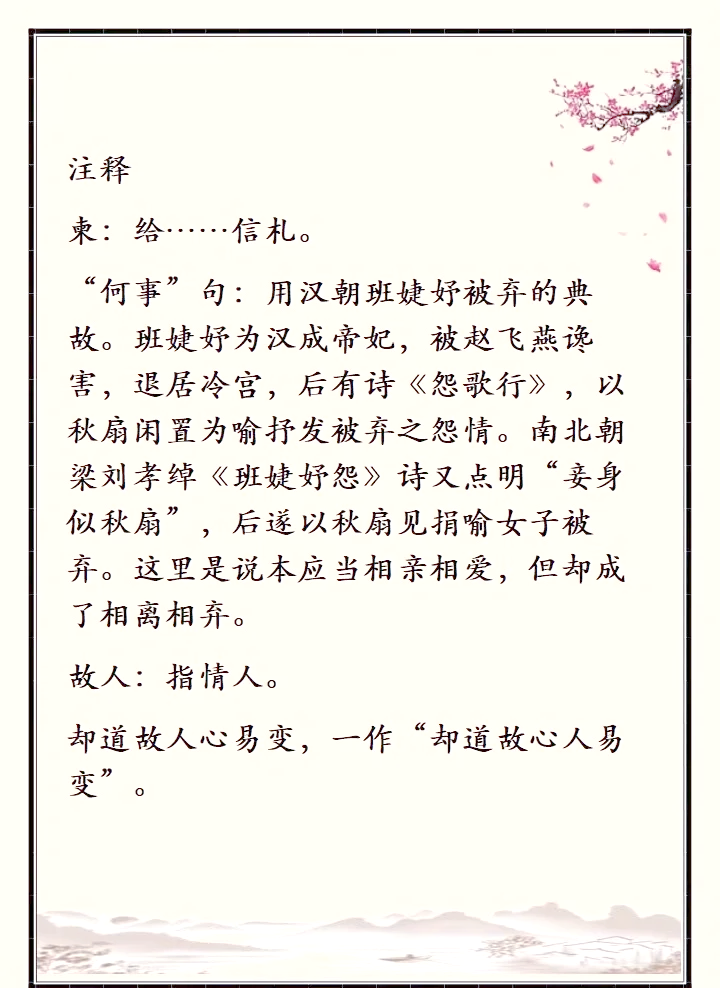 注释
柬：给……信札。
“何事”句：用汉朝班婕妤被弃的典
故。班婕妤为汉成帝妃，被赵飞燕谗
害，退居冷宫，后有诗《怨歌行》，以
秋扇闲置为喻抒发被弃之怨情。南北朝
梁刘孝绰《班婕妤怨》诗又点明“妾身
似秋扇”，后遂以秋扇见捐喻女子被
弃。这里是说本应当相亲相爱，但却成
了相离相弃。
故人：指情人。
却道故人心易变，一作“却道故心人易
变”。